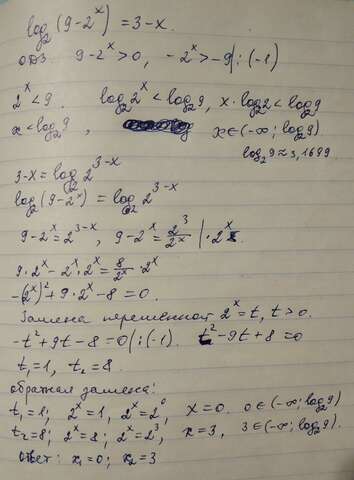 log₂(9-2ˣ) = 3-x.
ОДЗ 9-2ˣ>0, -2ˣ>-9 |:(-1)
2ˣ<9. log₂2ˣ<log₂9, x·log₂2<log₂9
x<log₂9, x∈(-∞; log₂9)
log₂9≈3,1699.
3-x=log₂2³⁻ˣ
log₂(9-2ˣ)=log₂2³⁻ˣ
9-2ˣ=2³⁻ˣ, 9-2ˣ=2³/2ˣ |·2ˣ.
9·2ˣ-2ˣ·2ˣ=8/2ˣ·2ˣ
-(2ˣ)²+9·2ˣ-8=0.
Замена переменной 2ˣ=t, t>0.
-t²+9t-8=0 |:(-1). t²-9t+8=0
t₁=1, t₂=8.
обратная замена:
t₁=1; 2ˣ=1, 2ˣ=2⁰, x=0. 0∈(-∞; log₂9)
t₂=8; 2ˣ=8; 2ˣ=2³, x=3, 3∈(-∞; log₂9).
Ответ: x₁=0; x₂=3